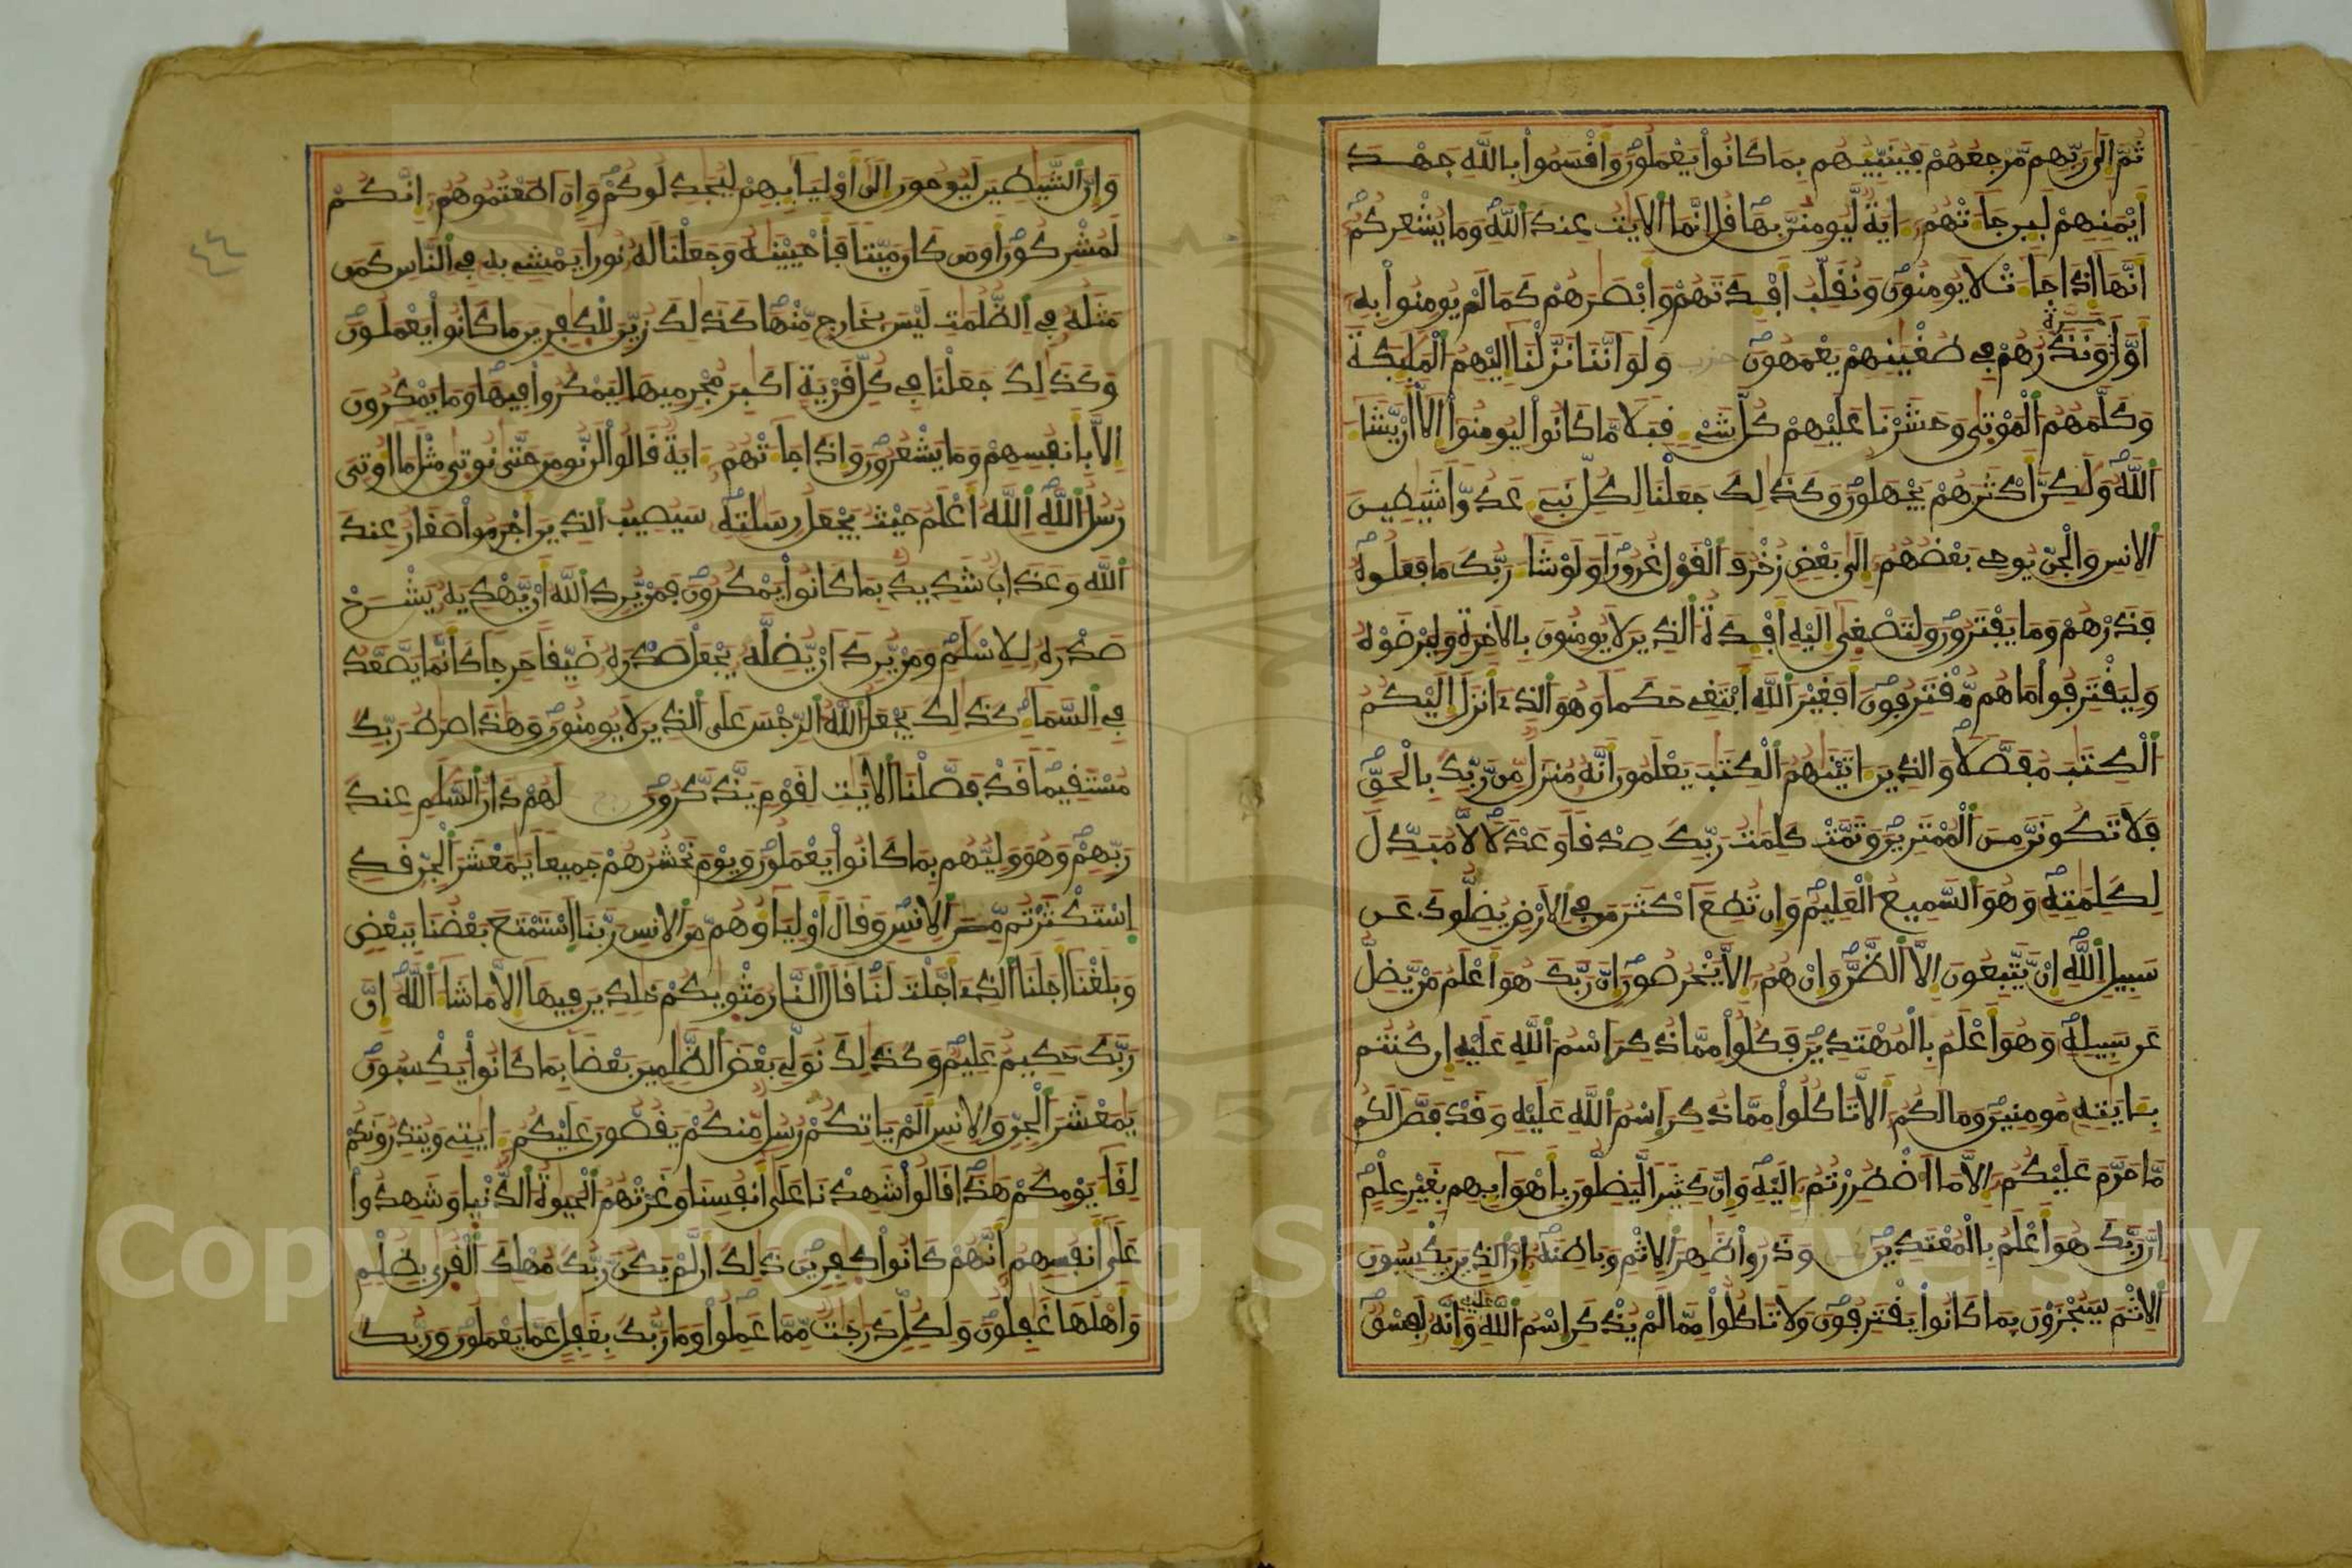 ثُمَّ إِلَى رَبِّهِم مَّرْجِعُهُمْ فَيُنَبِّئُهُم بِمَا كَانُوا يَعْمَلُونَ وَأَقْسَمُوا بِاللَّهِ جَهْدَ
أَيْمَٰنِهِمْ لَئِن جَآءَتْهُمُۥٓ ءَايَةٌ لَّيُومِنُنَّ بِهَا قُلِ انَّمَا الَايَٰتُ عِندَ اللَّهِ وَمَا يُشْعِرُكُمُۥٓ
أَنَّهَا إِذَا جَآءَتْ لَا يُومِنُونَ وَنُقَلِّبُ أَفْـِٕدَتَهُمْ وَأَبْصَٰرَهُمْ كَمَا لَمْ يُومِنُوا بِهِۦٓ
مَرَّةٍ
أَوَّلَ وَنَذَرُهُمْ فِي طُغْيَٰنِهِمْ يَعْمَهُونَ حزب وَلَوَ انَّنَا نَزَّلْنَا إِلَيْهِمُ الْمَلَٰٓئِكَةَ
وَكَلَّمَهُمُ الْمَوْتَىٰ وَحَشَرْنَا عَلَيْهِمْ كُلَّ شَيْءٍ قِبَلًا مَّا كَانُوا لِيُومِنُوا إِلَّا أَن يَّشَآءَ
اللَّهُ وَلَٰكِنَّ أَكْثَرَهُمْ يَجْهَلُونَ وَكَذَٰلِكَ جَعَلْنَا لِكُلِّ نَبِيٓءٍ عَدُوًّا شَيَٰطِينَ
الِانسِ وَالْجِنِّ يُوحِي بَعْضُهُمُۥٓ إِلَىٰ بَعْضٍ زُخْرُفَ الْقَوْلِ غُرُورًا وَلَوْ شَآءَ رَبُّكَ مَا فَعَلُوهُ
فَذَرْهُمْ وَمَا يَفْتَرُونَ وَلِتَصْغَىٰ إِلَيْهِ أَفْـِٕدَةُ الَّذِينَ لَا يُومِنُونَ بِالَاخِرَةِ وَلِيَرْضَوْهُ
وَلِيَقْتَرِفُوا مَا هُم مُّقْتَرِفُونَ أَفَغَيْرَ اللَّهِ أَبْتَغِي حَكَمًا وَهُوَ الَّذِي أَنزَلَ إِلَيْكُمُ
الْكِتَٰبَ مُفَصَّلًا وَالَّذِينَ ءَاتَيْنَٰهُمُ الْكِتَٰبَ يَعْلَمُونَ أَنَّهُ مُنزَلٌ مِّن رَّبِّكَ بِالْحَقِّ
فَلَا تَكُونَنَّ مِنَ الْمُمْتَرِينَ وَتَمَّتْ كَلِمَٰتُ رَبِّكَ صِدْقًا وَعَدْلًا لَّا مُبَدِّلَ
لِكَلِمَٰتِهِ وَهُوَ السَّمِيعُ الْعَلِيمُ وَإِن تُطِعَ اكْثَرَ مَن فِي الَارْضِ يُضِلُّوكَ عَن
سَبِيلِ اللَّهِ إِنْ يَّتَّبِعُونَ إِلَّا الظَّنَّ وَإِنْ هُمُۥٓ إِلَّا يَخْرُصُونَ إِنَّ رَبَّكَ هُوَ أَعْلَمُ مَنْ يَّضِلُّ
عَن سَبِيلِهِ وَهُوَ أَعْلَمُ بِالْمُهْتَدِينَ فَكُلُوا مِمَّا ذُكِرَ اسْمُ اللَّهِ عَلَيْهِ إِن كُنتُم
بِـَٔايَٰتِهِ مُومِنِينَ وَمَا لَكُمُۥٓ أَلَّا تَاكُلُوا مِمَّا ذُكِرَ اسْمُ اللَّهِ عَلَيْهِ وَقَدْ فَصَّلَ لَكُم
مَّا حَرَّمَ عَلَيْكُمُۥٓ إِلَّا مَا اضْطُرِرْتُمُۥٓ إِلَيْهِ وَإِنَّ كَثِيرًا لَّيَضِلُّونَ بِأَهْوَآئِهِم بِغَيْرِ عِلْمٍ
إِنَّ رَبَّكَ هُوَ أَعْلَمُ بِالْمُعْتَدِينَ وَذَرُوا ظَٰهِرَ الِاثْمِ وَبَاطِنَهُ إِنَّ الَّذِينَ يَكْسِبُونَ
الِاثْمَ سَيُجْزَوْنَ بِمَا كَانُوا يَقْتَرِفُونَ وَلَا تَاكُلُوا مِمَّا لَمْ يُذْكَرِ اسْمُ اللَّهِ عَلَيْهِ وَإِنَّهُ لَفِسْقٌ
وَإِنَّ الشَّيَٰطِينَ لَيُوحُونَ إِلَىٰ أَوْلِيَآئِهِمْ لِيُجَٰدِلُوكُمْ وَإِنَ اطَعْتُمُوهُمُۥٓ إِنَّكُمْ
لَمُشْرِكُونَ أَوَمَن كَانَ مَيِّتًا فَأَحْيَيْنَٰهُ وَجَعَلْنَا لَهُ نُورًا يَمْشِي بِهِ فِي النَّاسِ كَمَن
مَّثَلُهُ فِي الظُّلُمَٰتِ لَيْسَ بِخَارِجٍ مِّنْهَا كَذَٰلِكَ زُيِّنَ لِلْكَٰفِرِينَ مَا كَانُوا يَعْمَلُونَ
وَكَذَٰلِكَ جَعَلْنَا فِي كُلِّ قَرْيَةٍ اكَٰبِرَ مُجْرِمِيهَا لِيَمْكُرُوا فِيهَا وَمَا يَمْكُرُونَ
إِلَّا بِأَنفُسِهِمْ وَمَا يَشْعُرُونَ وَإِذَا جَآءَتْهُمُۥٓ ءَايَةٌ قَالُوا لَن نُّومِنَ حَتَّىٰ نُوتَىٰ مِثْلَ مَا أُوتِيَ
رُسُلُ اللَّهِ اللَّهُ أَعْلَمُ حَيْثُ يَجْعَلُ رِسَٰلَٰتِهِ سَيُصِيبُ الَّذِينَ أَجْرَمُوا صَغَارٌ عِندَ
اللَّهِ وَعَذَابٌ شَدِيدٌ بِمَا كَانُوا يَمْكُرُونَ فَمَنْ يُّرِدِ اللَّهُ أَنْ يَّهْدِيَهُ يَشْرَحْ
صَدْرَهُ لِلِاسْلَٰمِ وَمَنْ يُّرِدَ انْ يُّضِلَّهُ يَجْعَلْ صَدْرَهُ ضَيِّقًا حَرِجًا كَأَنَّمَا يَصَّعَّدُ
فِي السَّمَآءِ كَذَٰلِكَ يَجْعَلُ اللَّهُ الرِّجْسَ عَلَى الَّذِينَ لَا يُومِنُونَ وَهَٰذَا صِرَٰطُ رَبِّكَ
مُسْتَقِيمًا قَدْ فَصَّلْنَا الَايَٰتِ لِقَوْمٍ يَذَّكَّرُونَ ربع لَهُمْ دَارُ السَّلَٰمِ عِندَ
رَبِّهِمْ وَهُوَ وَلِيُّهُم بِمَا كَانُوا يَعْمَلُونَ وَيَوْمَ نَحْشُرُهُمْ جَمِيعًا يَٰمَعْشَرَ الْجِنِّ قَدِ
اسْتَكْثَرْتُم مِّنَ الِانسِ وَقَالَ أَوْلِيَآؤُهُم مِّنَ الِانسِ رَبَّنَا اسْتَمْتَعَ بَعْضُنَا بِبَعْضٍ
وَبَلَغْنَا أَجَلَنَا الَّذِي أَجَّلْتَ لَنَا قَالَ النَّارُ مَثْوَىٰكُمْ خَٰلِدِينَ فِيهَا إِلَّا مَا شَآءَ اللَّهُ إِنَّ
رَبَّكَ حَكِيمٌ عَلِيمٌ وَكَذَٰلِكَ نُوَلِّي بَعْضَ الظَّٰلِمِينَ بَعْضًا بِمَا كَانُوا يَكْسِبُونَ
يَٰمَعْشَرَ الْجِنِّ وَالِانسِ أَلَمْ يَاتِكُمْ رُسُلٌ مِّنكُمْ يَقُصُّونَ عَلَيْكُمُۥٓ ءَايَٰتِي وَيُنذِرُونَكُمْ
لِقَآءَ يَوْمِكُمْ هَٰذَا قَالُوا شَهِدْنَا عَلَىٰ أَنفُسِنَا وَغَرَّتْهُمُ الْحَيَوٰةُ الدُّنْيَا وَشَهِدُوا
عَلَىٰ أَنفُسِهِمُۥٓ أَنَّهُمْ كَانُوا كَٰفِرِينَ ذَٰلِكَ أَن لَّمْ يَكُن رَّبُّكَ مُهْلِكَ الْقُرَىٰ بِظُلْمٍ
وَأَهْلُهَا غَٰفِلُونَ وَلِكُلٍّ دَرَجَٰتٌ مِّمَّا عَمِلُوا وَمَا رَبُّكَ بِغَٰفِلٍ عَمَّا يَعْمَلُونَ وَرَبُّكَ
٤٤
Copyright © King Saud University
1957